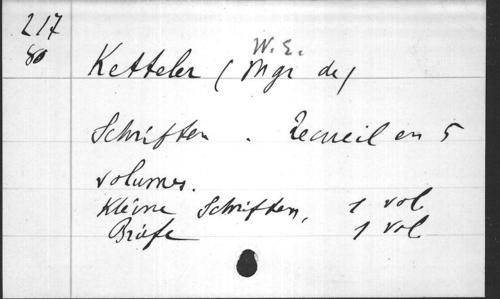 217
80
W. E.
Ketteler (Mgr de)
Schriften . Recueil en 5
volumes.
Kleine Schriften, 1 vol
Briefe 1 vol